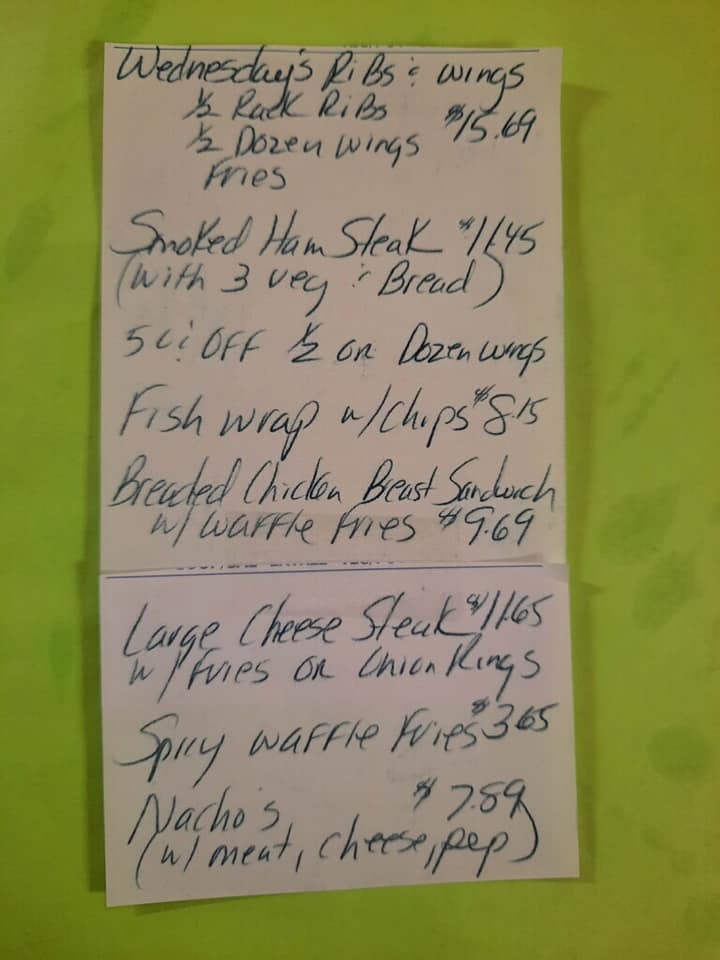 Wednesday's RiBs & wings
1/2 Rack RiBs
1/2 Dozen wings $15.69
Fries
Smoked Ham Steak $11.45
(with 3 veg & Bread)
OFF 1/2 or Dozen wings
Fish wrap w/chips $8.15
Breaded Chicken Breast Sandwich
w/ waffle fries $9.69
Large Cheese Steak $11.65
w/ fries or Onion Rings
Spicy waffle Fries $3.65
Nacho's $7.89
(w/ meat, cheese, pep)